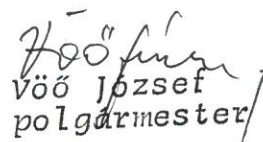 Vöő József
polgármester